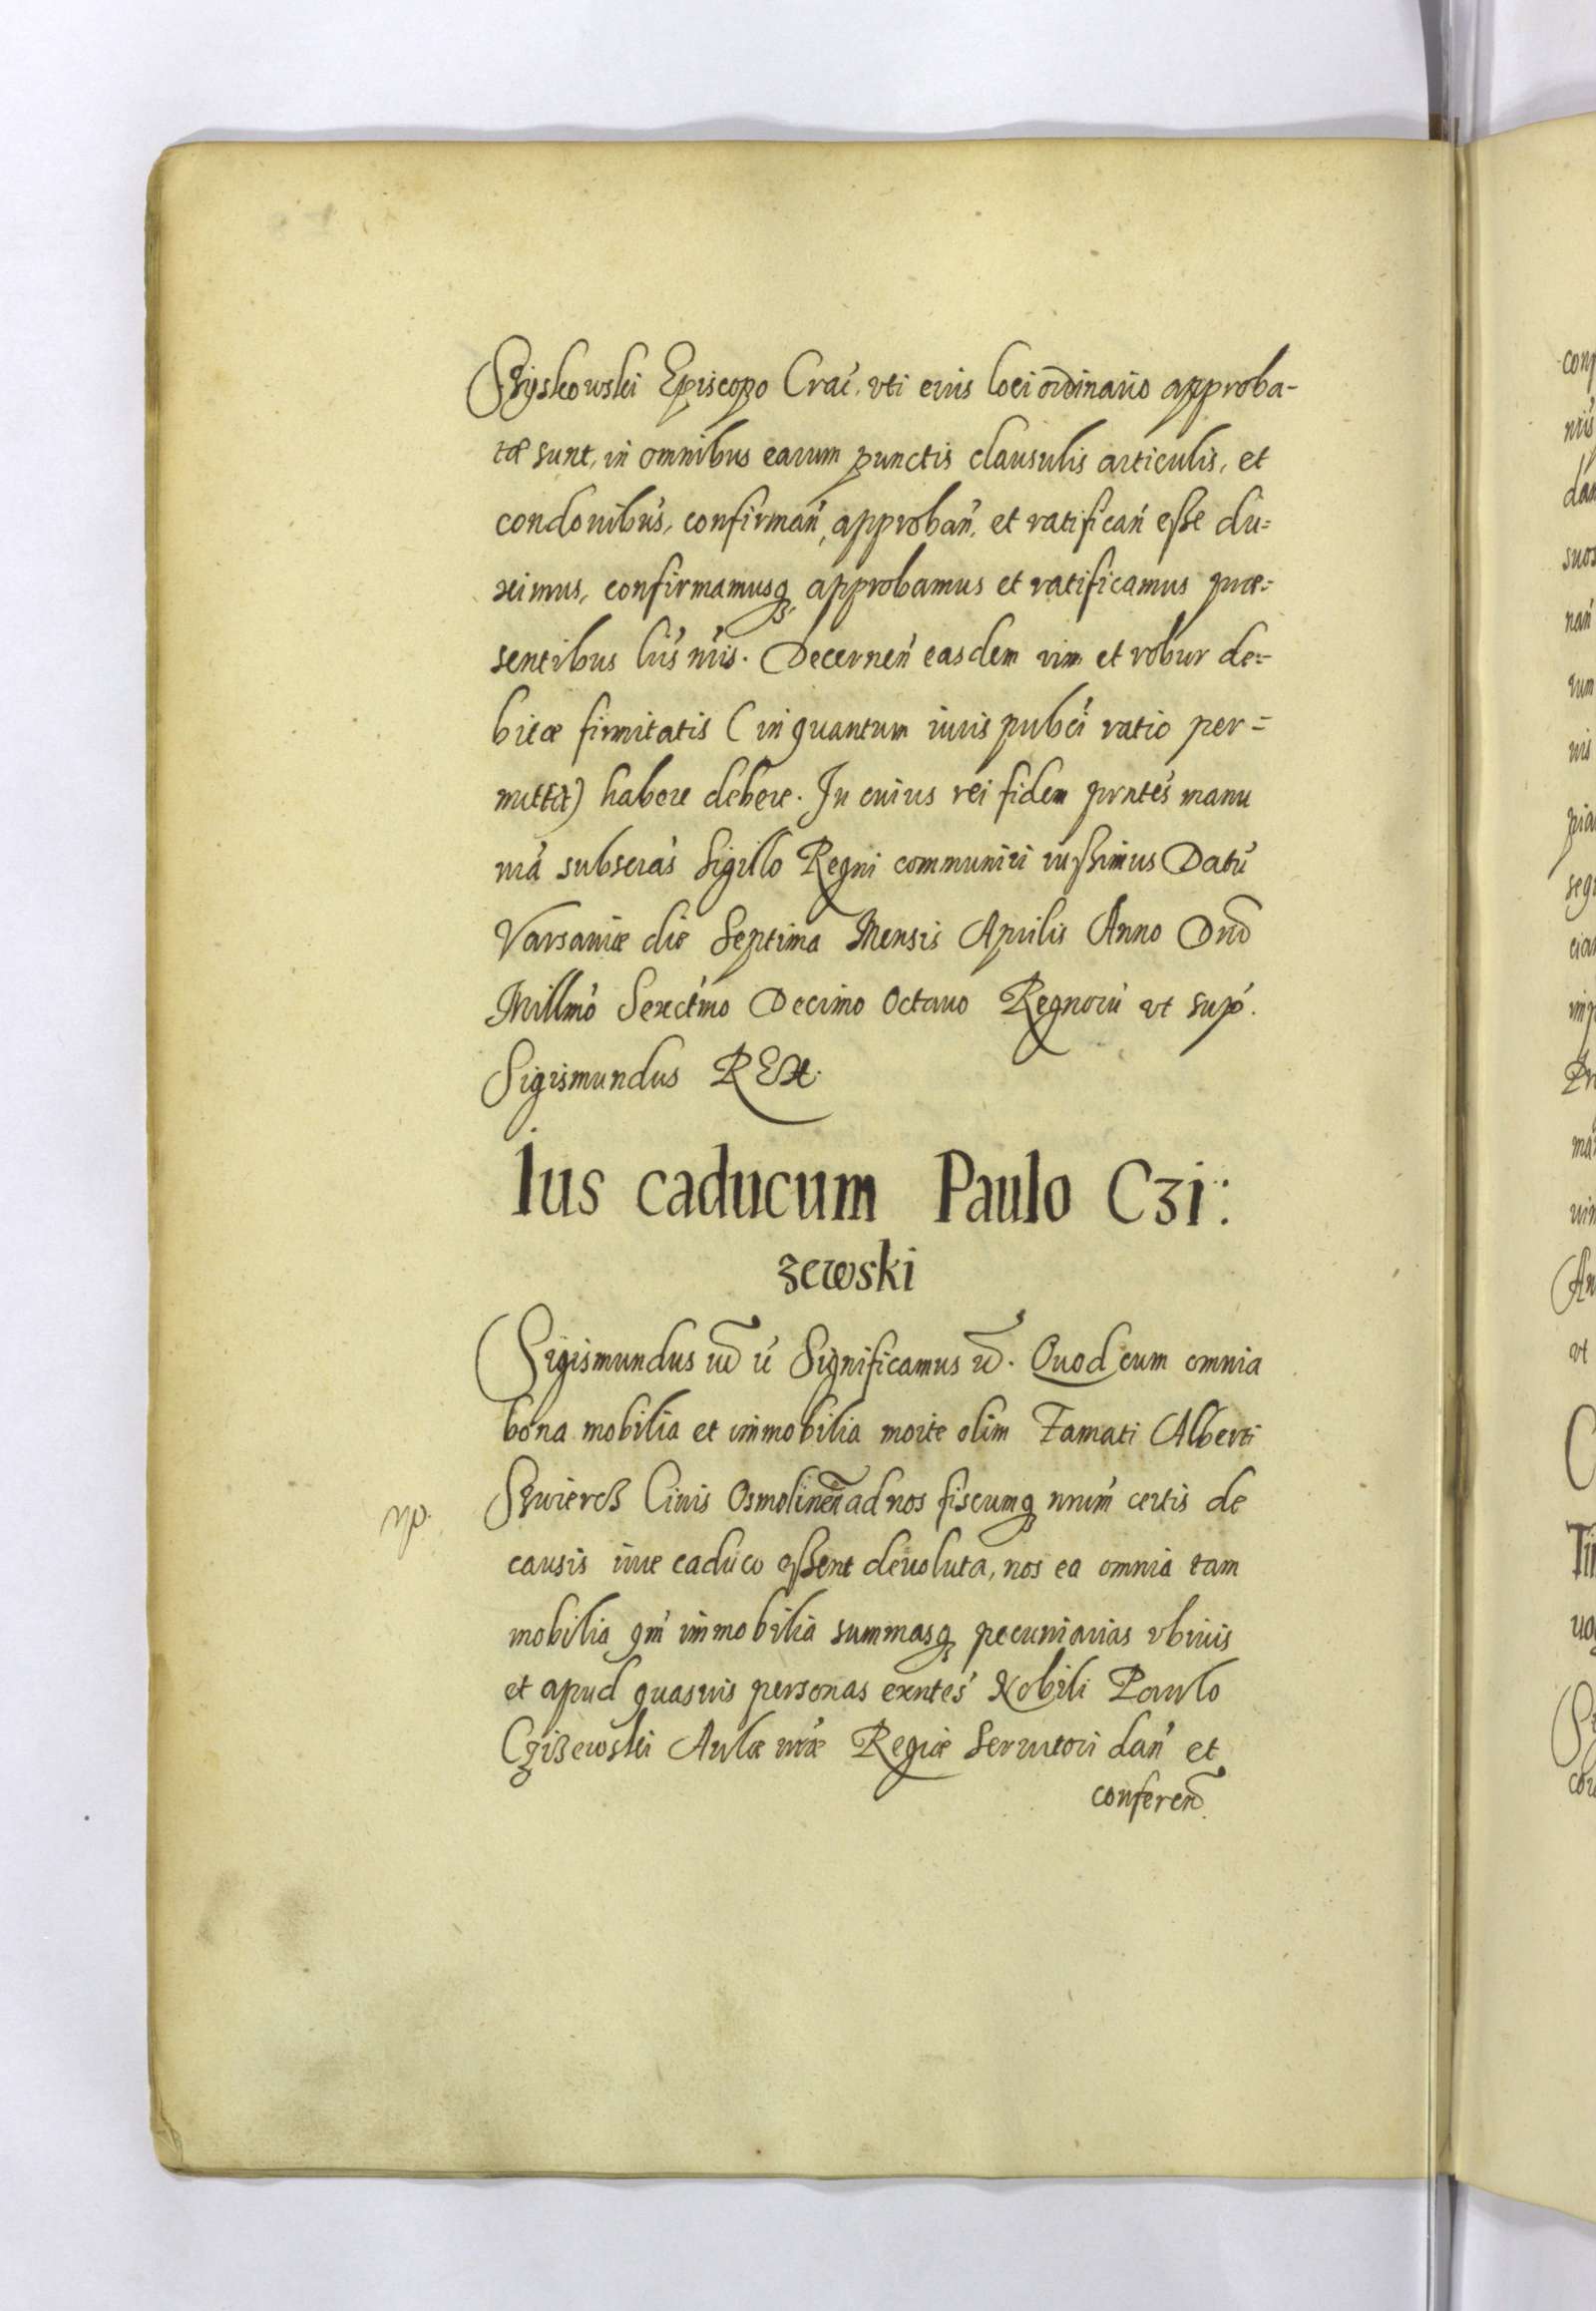 Szyskowski Episcopo Crac̃. uti eius loci ordinario approba-
tæ sunt, in omnibus earum punctis clausulis articulis, et
condonibus̃, confirmañ, approbañ, et ratificañ esse du=
ximus, confirmamusq approbamus et ratificamus præ=
sentibus lris̃ nr̃is. Decerneñ easdem vim et robur de=
bitæ firmitatis (in quantum iuris publci ratio per=
mittit) habere debere. In cuius rei fidem prntes̃ manu
nrã subscras̃ Sigillo Regni communiri iussimus Datũ
Varsaviæ die Septima Mensis Aprilis Anno Dnĩ
Millmõ Sexctmõ Decimo Octavo Regnorũ ut sup̃.
Sigismundus REX.
Ius caducum Paulo Czi:
zewski
Sigismundus Significamus Quod cum omnia
bona mobilia et immobilia morte olim Famati Alberti
Szwiercz Civis Osmolineñ ad nos fiscumq nrum̃ certis de
causis iure caduco essent devoluta, nos ea omnia tam
mobilia qm̃ immobilia summasq pecuniarias ubivis
et apud quasvis personas exntes̃ Nobili Paulo
Cziżewski Aulæ nr̃æ Regiæ Servitori dañ et
confereñ